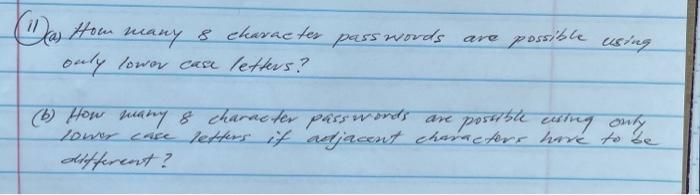 11) (a) How many 8 character passwords are possible using
only lower case letters?
(b) How many 8 character passwords are possible using only
lower case letters if adjacent characters have to be
different?